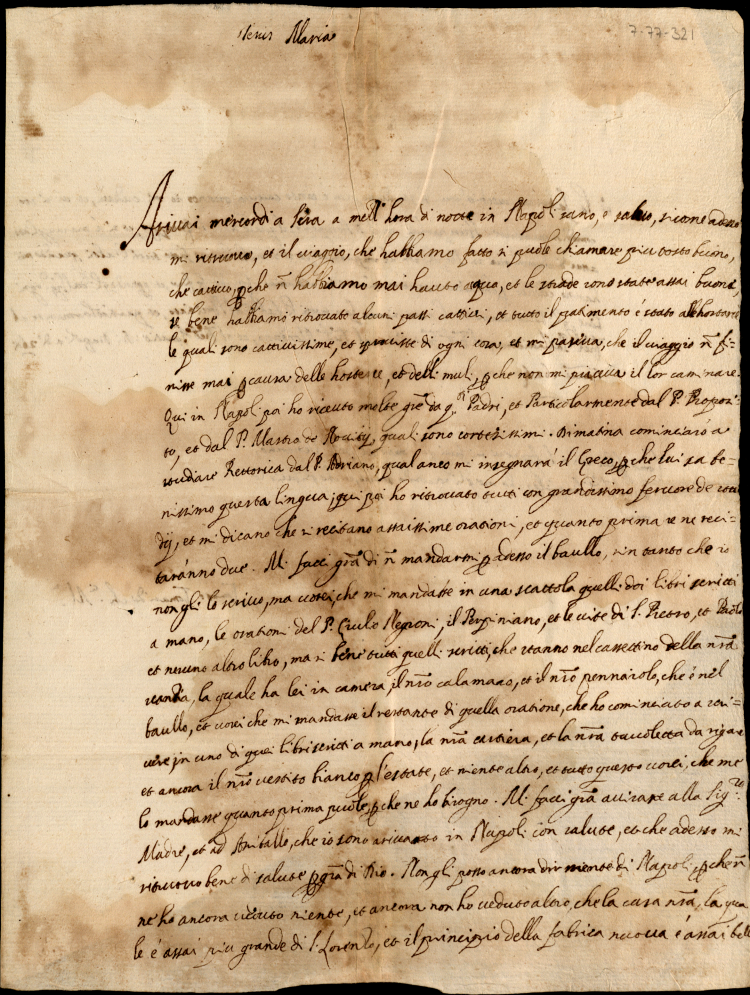 Jesus Maria
7-77-321
Arivai mercordi a sera a mezz'hora di notte in Napoli sano, e salvo, si come adesso
mi ritruovo, et il viaggio, che habbiamo fatto si puole chiamare piu tosto buono,
che cattivo, p che ñ habbiamo mai hauto aqua, et le strade sono state assai buone,
se bene habbiamo ritrovato alcuni passi cattivi, et tutto il patimento è stato all'hostarie
le quali sono cattivissime, et sproviste di ogni cosa, et mi pariva, che il viaggio ñ fi-
nisse mai p causa delle hosterie, et delli muli, p che non mi piaciva il lor caminare.
Qui in Napoli poi ho ricevuto molte grãe da q.sti Padri, et Particolarmente dal P. Preposi-
to, et dal P. Mastro de Novitij, quali sono cortesissimi. Dimatina cominciarò a
studiare Rettorica dal P. Adriano, qual anco mi insegnarà il Greco, p che lui sa be-
nissimo questa lingua; qui poi ho ritrovato tutti con grandissimo fervore de stu-
dij, et mi dicano che si recitano assaissime orationi, et quanto prima se ne reci-
taranno due. Mi facci grã di ñ mandarmi p adesso il baullo, sin tanto che io
non gli lo scrivo, ma vorei, che mi mandasse in una scattola quelli doi libri scritti
a mano, le orationi del P. Giulio Negroni, il Perpiniano, et le vite di S. Pietro, et Paolo
et nesuno altro libro, ma si bene tutti quelli scritti, che stanno nel cassettino della nrã
, la quale ha lei in camera, il nrõ calamaro, et il nrõ pennarolo, che è nel
baullo, et vorei che mi mandasse il restante di quella oratione, che ho cominciato a scri-
vere in uno di quei libri scritti a mano, la nrã cartiera, et la nrã tavoletta da rigare
et ancora il nrõ vestito bianco p l'estate, et niente altro, et tutto questo vorei, che me
lo mandasse quanto prima puole, p che ne ho bisogno. Mi facci grã avisare alla Sig.ra
Madre, et ad Aniballo, che io sono arrivato in Napoli con salute, et che adesso mi
ritruovo bene di salute p grã di Dio. Non gli posso ancora dir niente di Napoli, p che ñ
ne ho ancora veduto niente, et ancora non ho veduto altro, che la casa nrã, la qua
le è assai piu grande di S. Lorenzo, et il principio della fabrica nuova è assai bell